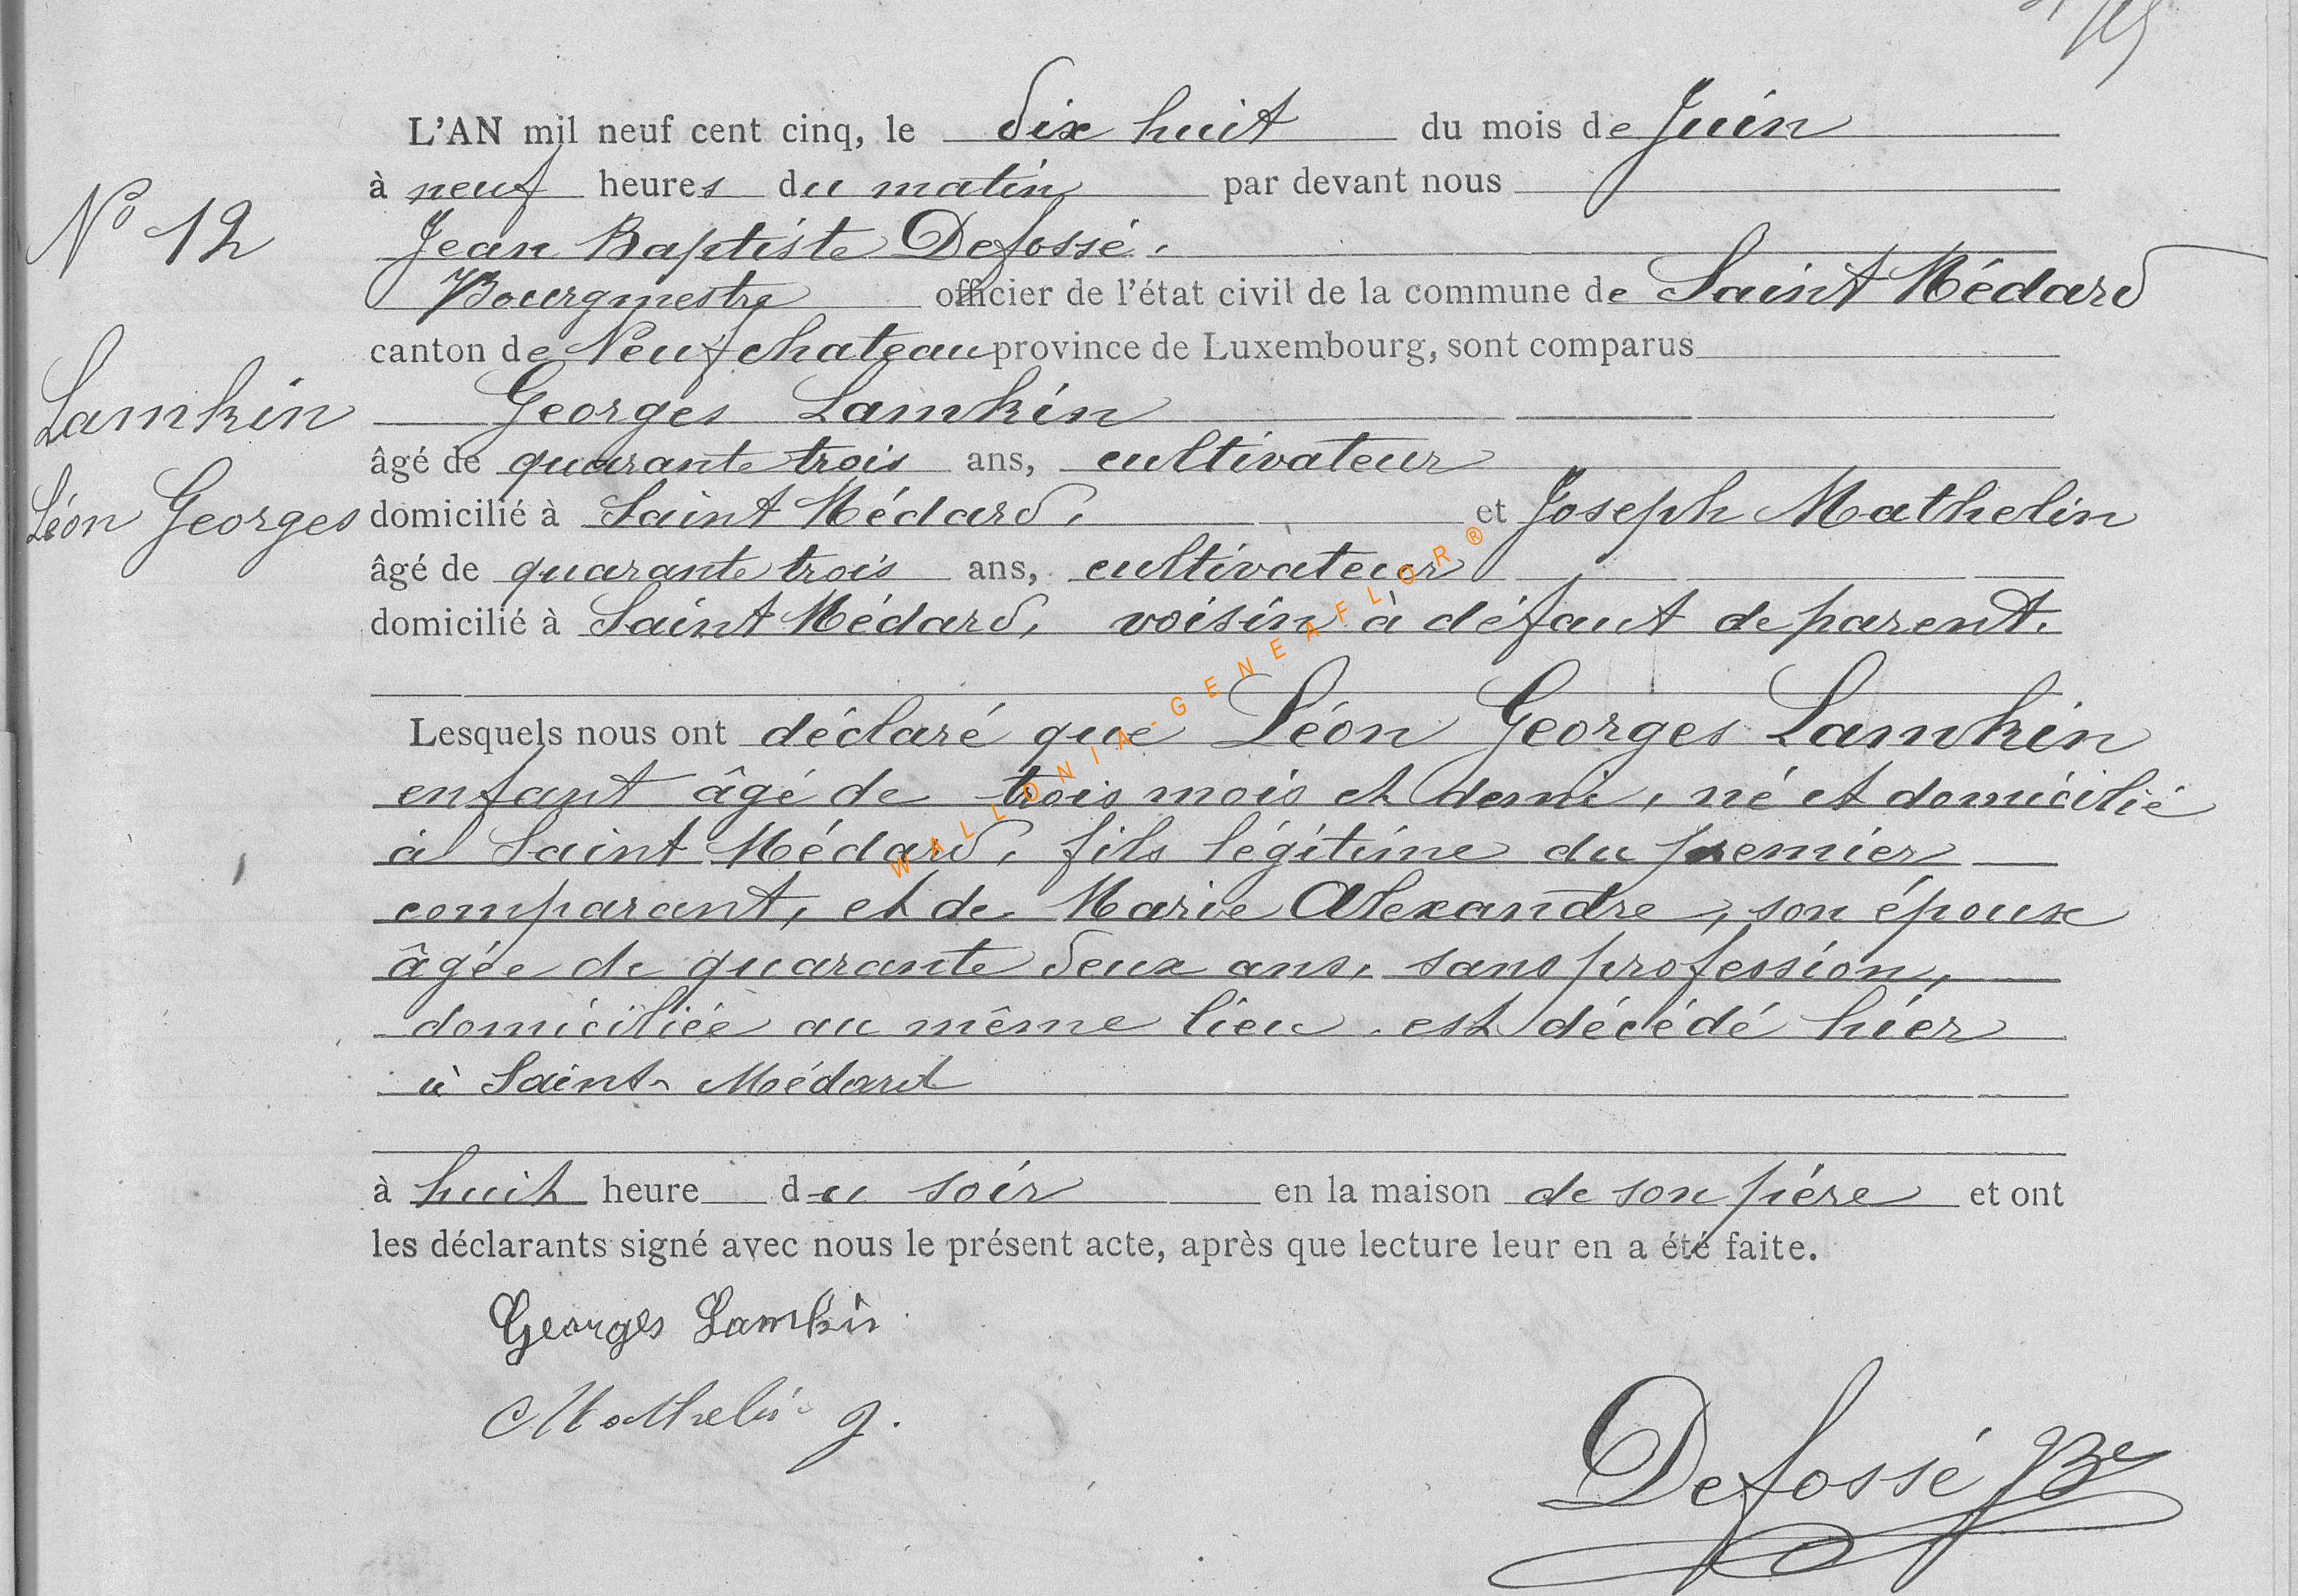 L'AN mil neuf cent cinq, le dix huit du mois de Juin
à neuf heures du matin par devant nous
N° 12
Jean Baptiste Defossé.
Bourgmestre officier de l'état civil de la commune de Saint Médard
canton de Neufchateau province de Luxembourg, sont comparus
Lamkin
Georges Lamkin
âgé de quarante trois ans, cultivateur
Léon Georges
domicilié à Saint Médard, et Joseph Mathelin
âgé de quarante trois ans, cultivateur
domicilié à Saint Médard, voisin à défaut de parent.
Lesquels nous ont déclaré que Léon Georges Lamkin
enfant âgé de trois mois et demi, né et domicilié
à Saint Médard, fils légitime du premier
comparant, et de Marie Alexandre, son épouse
âgée de quarante deux ans, sans profession,
domiciliée au même lieu, est décédé hier
à Saint-Médard
à huit heure du soir en la maison de son père et ont
les déclarants signé avec nous le présent acte, après que lecture leur en a été faite.
Georges Lamkin
Mathelin J.
Defossé Bre
WALLONIA-GENEAFLOR®